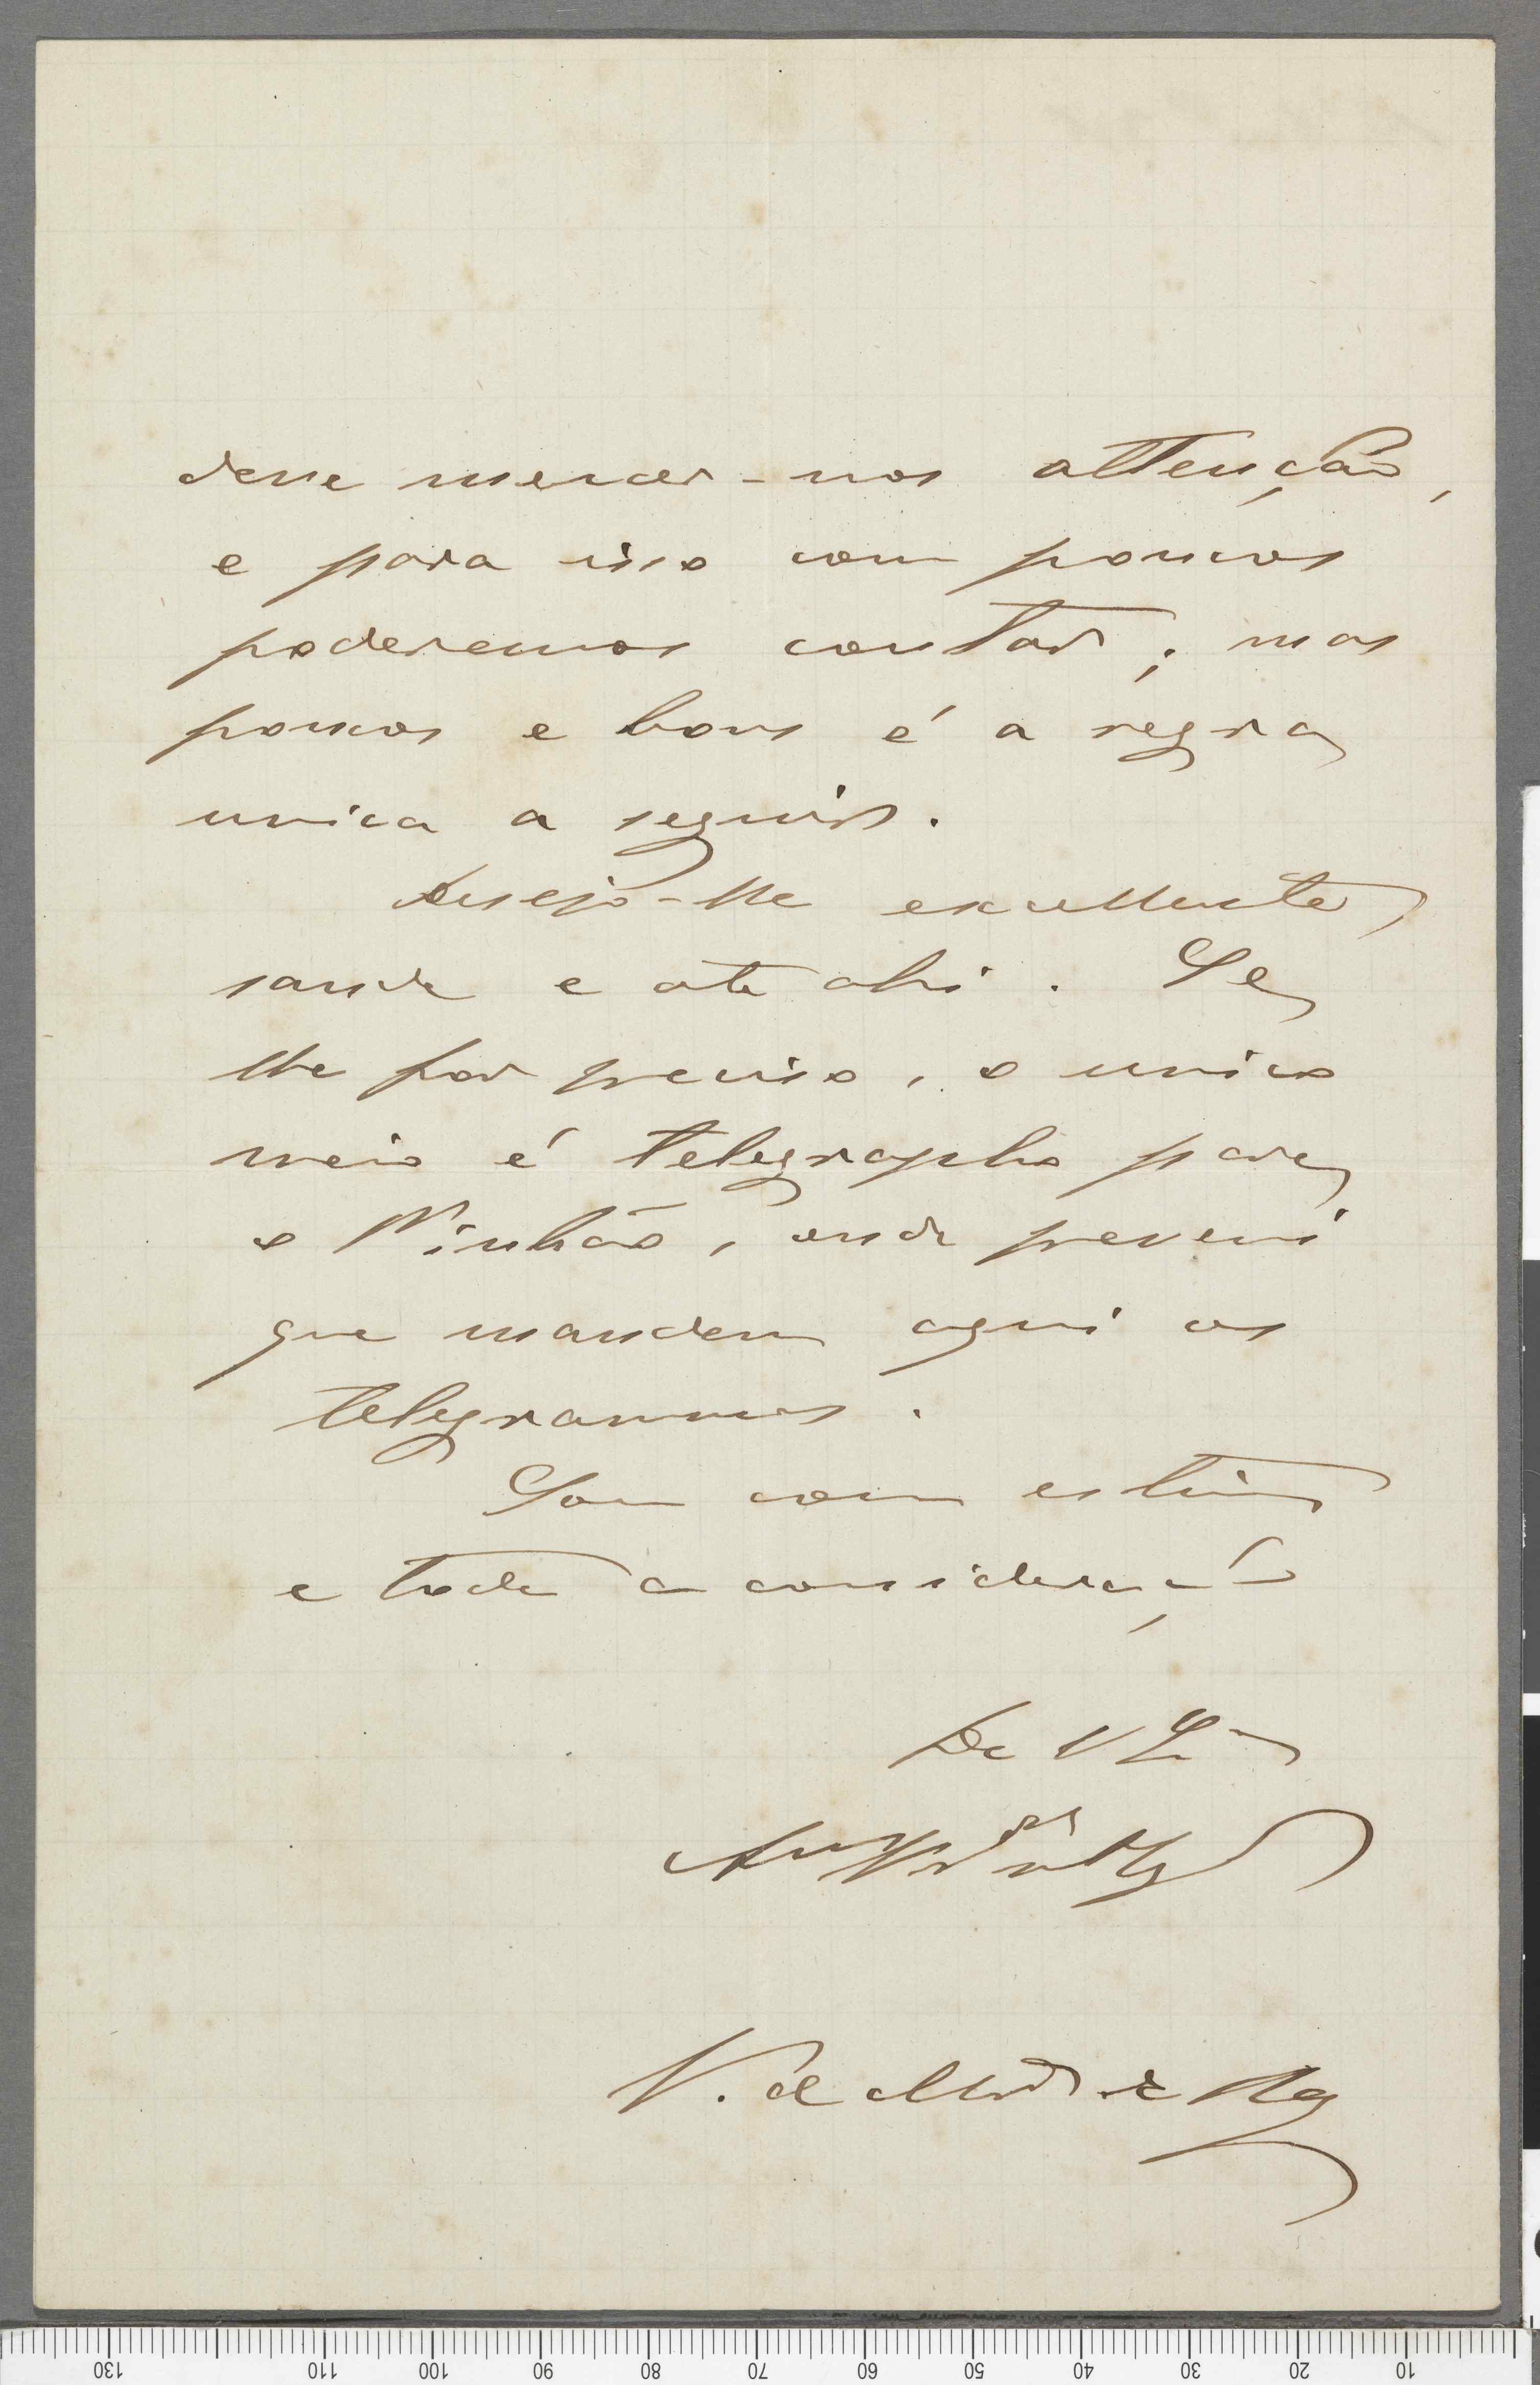 deve merecer-nos attenção,
e para isso com poucos
poderemos contar; mas
poucos e bons é a regra
unica a seguir.
Desejo-lhe excellente
saude e ate ahi. Se
lhe for preciso, o unico
meio é telegrapho para
o Pinhão, onde preveni
que mandem aqui os
telegrammas.
Sou com estima
e toda a consideração
De V E
V. de
130 110 100 90 80 70 60 50 40 30 20 10